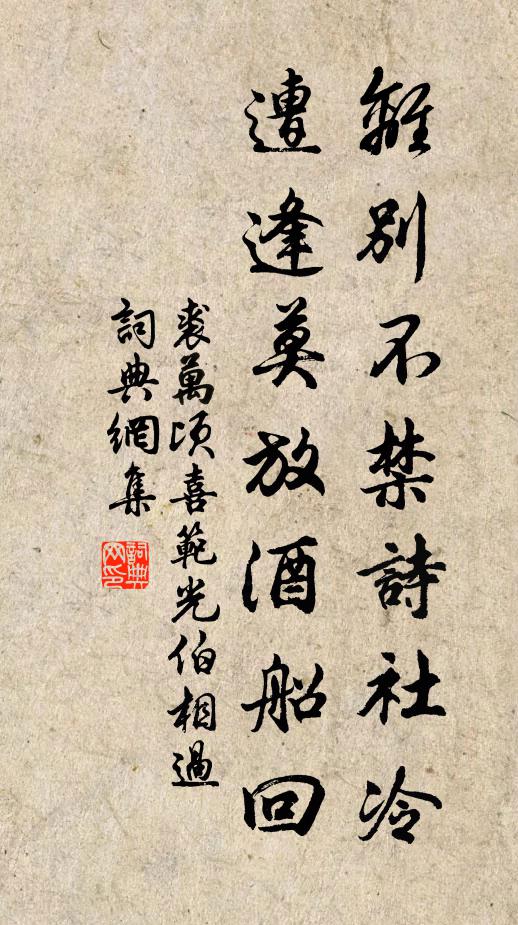 離別不禁詩社冷
遭逢莫放酒船回
裘萬頃喜範光伯相過
詞典網集
詞典網印